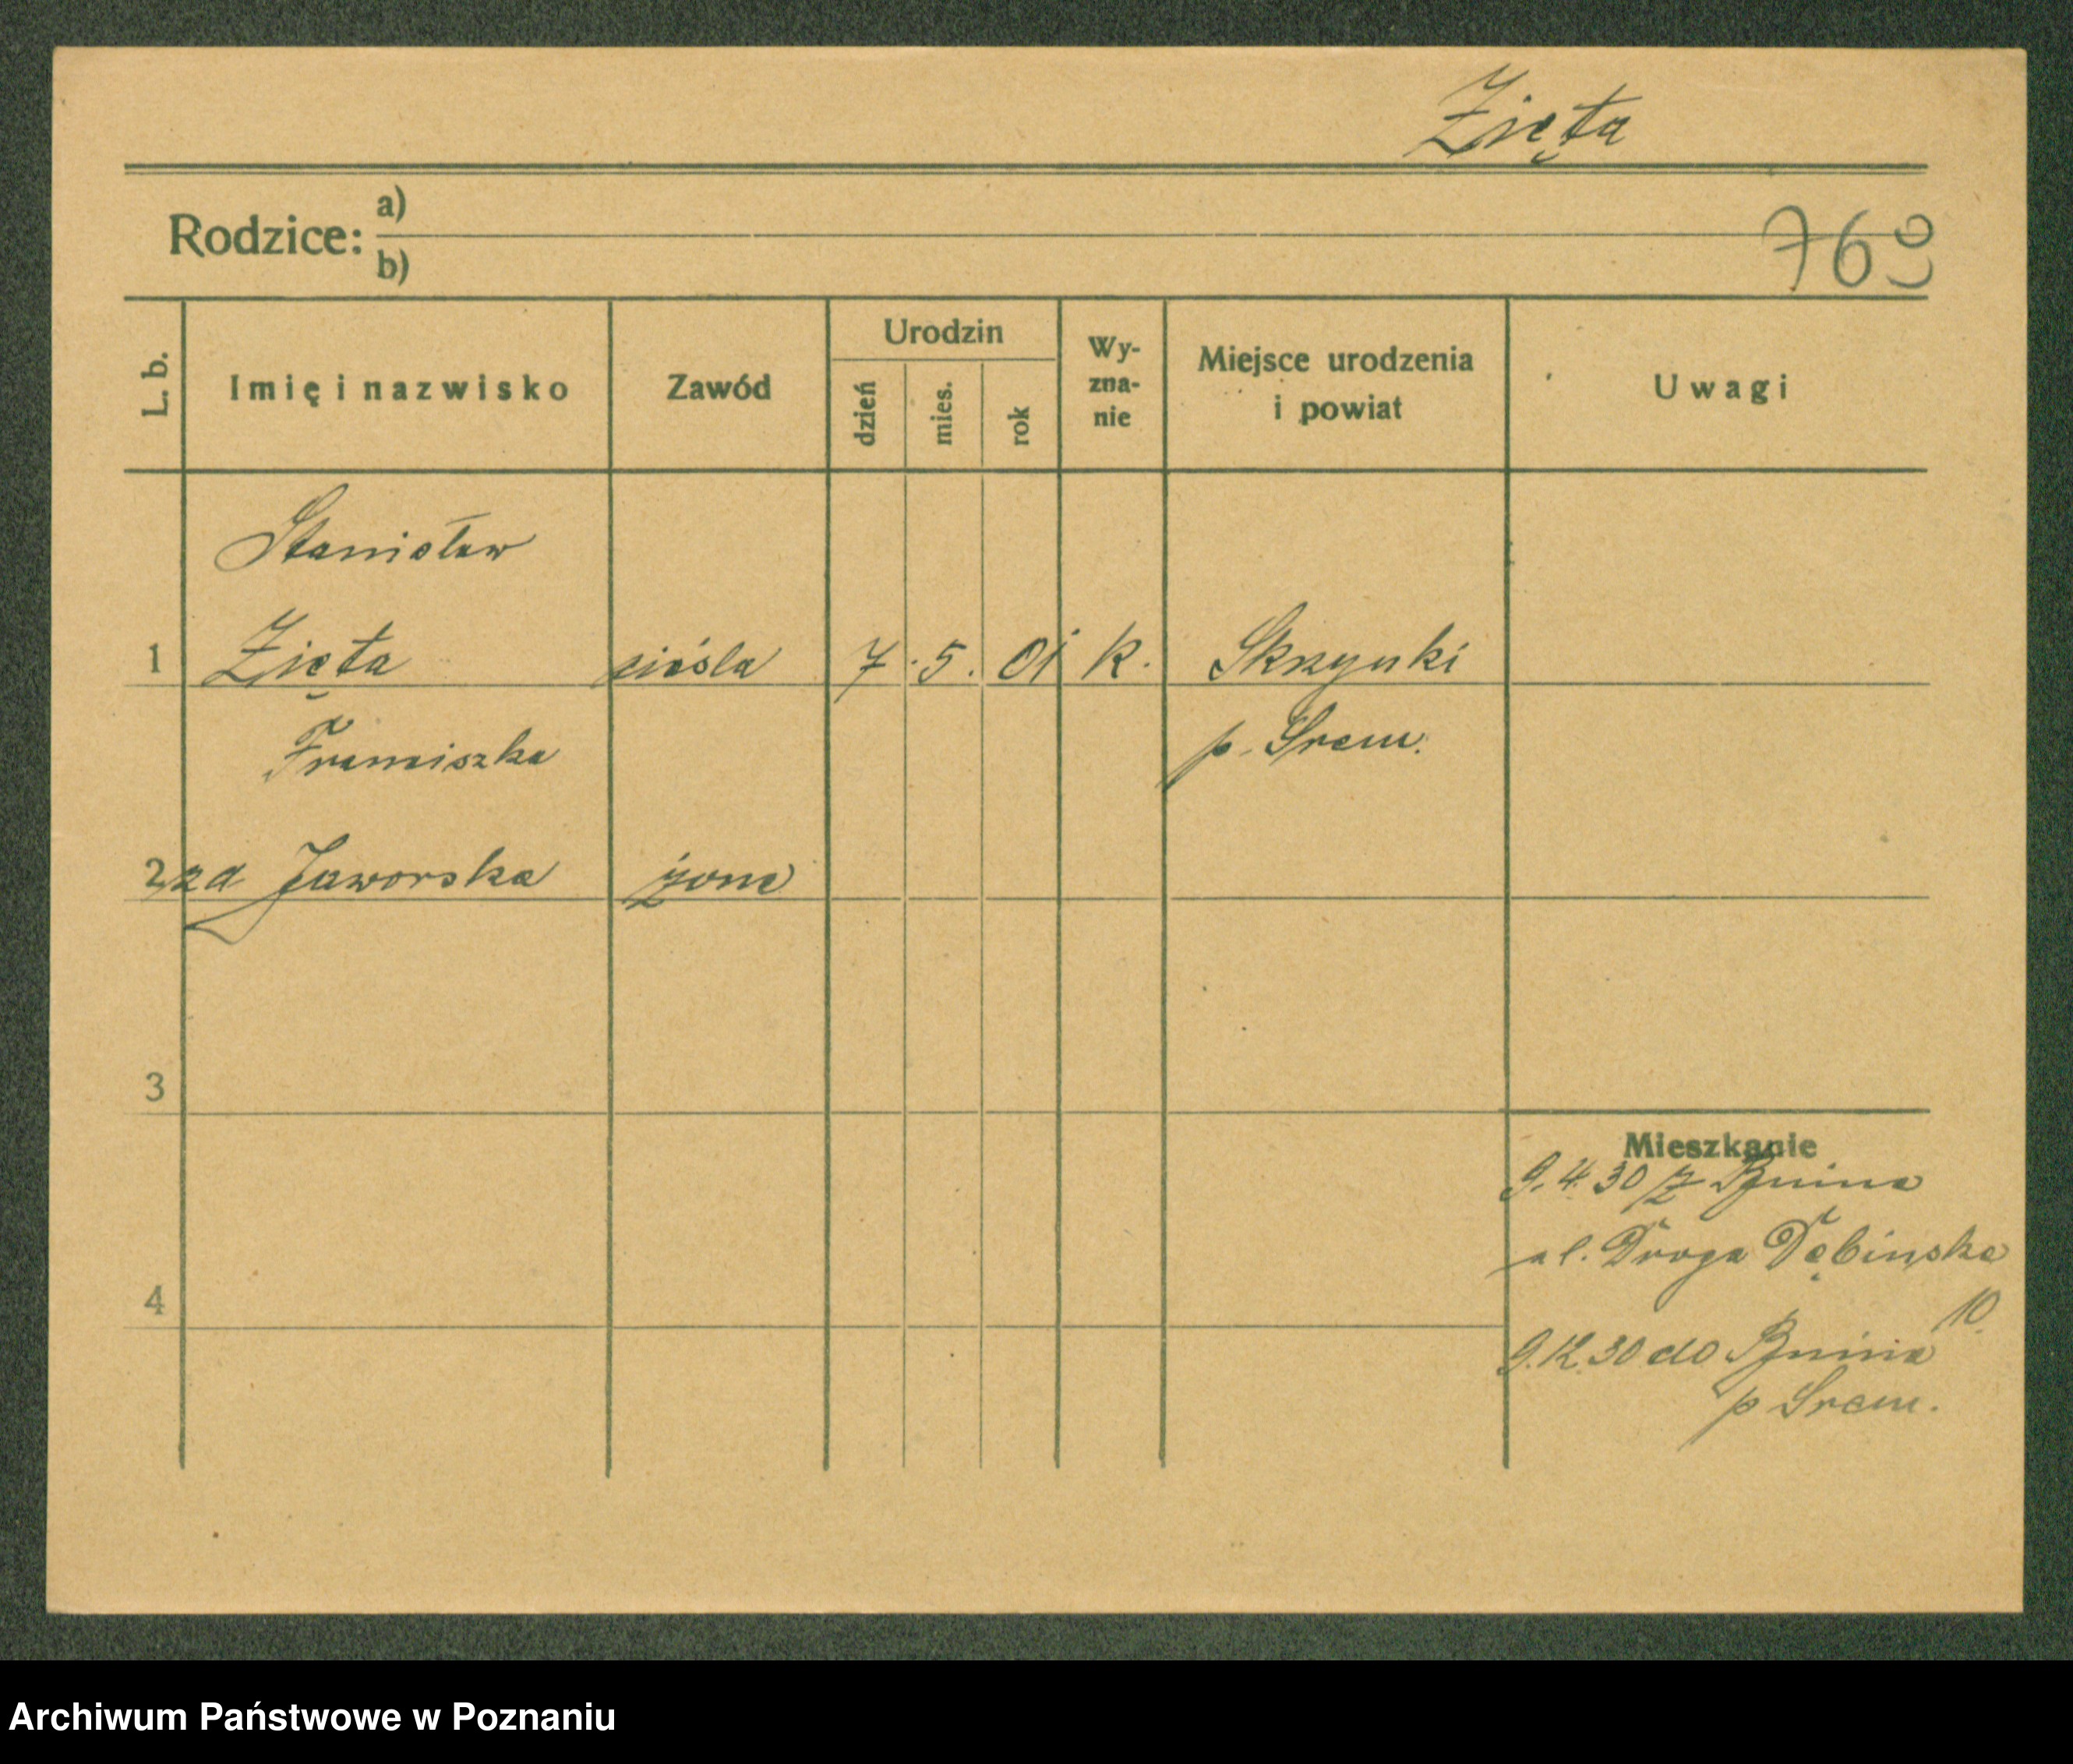 Zięta
Rodzice: a)
b)
769
L. b. Imię i nazwisko Zawód Urodzin dzień mies. rok Wy-zna-nie Miejsce urodzenia i powiat Uwagi
Stanisław
1 Zięta cieśla 7. 5. 01 k. Skrzynki
Franciszka p. Śrem.
2 zd Jaworska żona
3
Mieszkanie
9.4.30 z Bnina
ul. Droga Dębinska
4
10.
9.12.30 do Bnina
p Śrem.
Archiwum Państwowe w Poznaniu